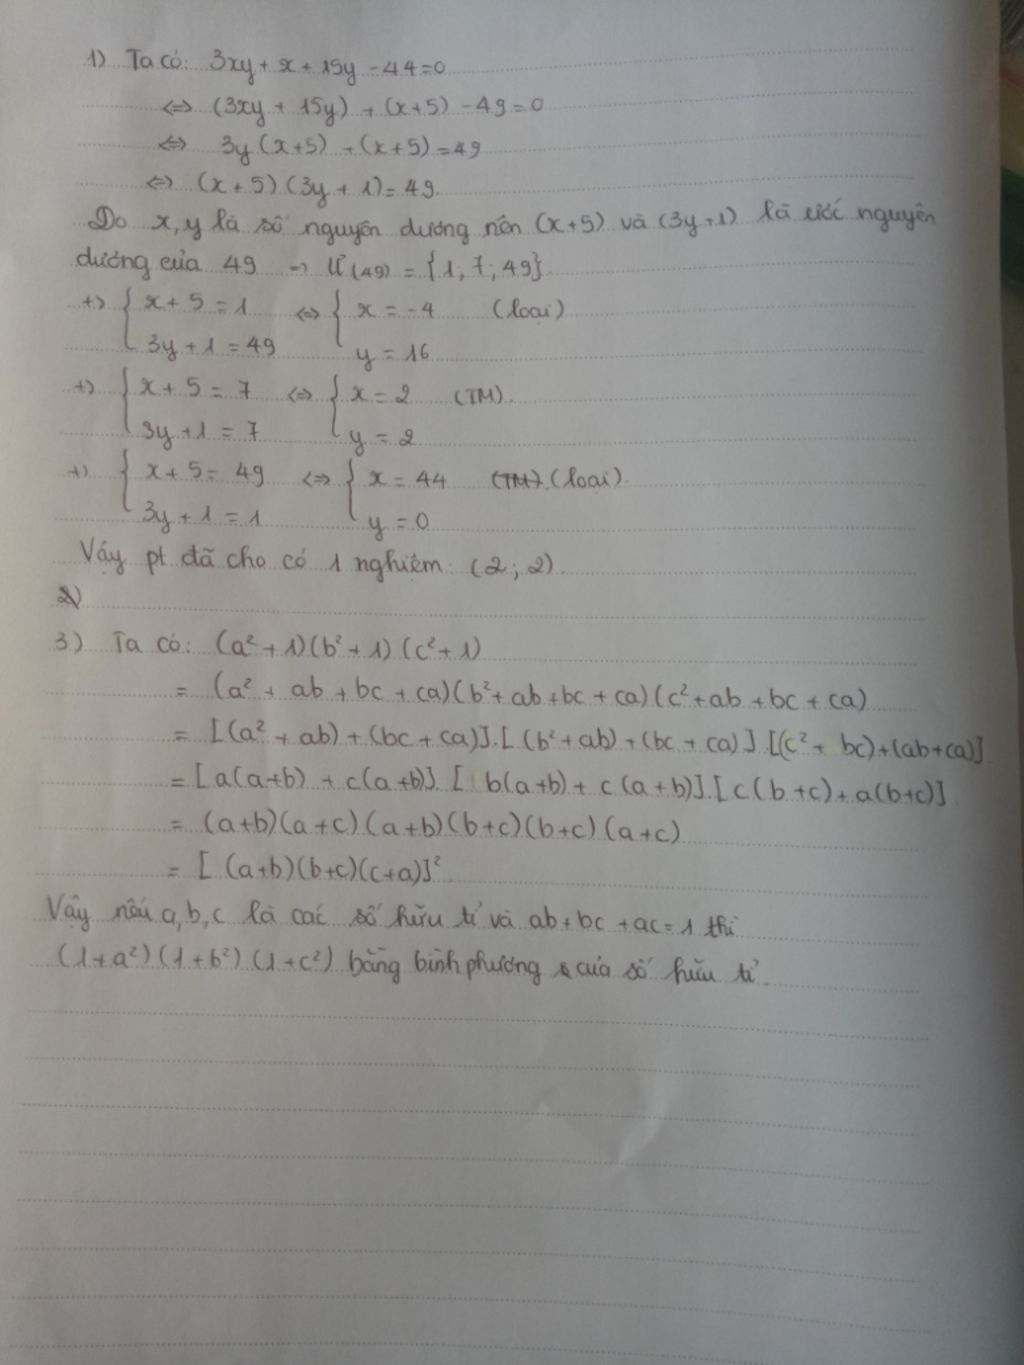 1) Ta có: 3xy + x + 15y - 44 = 0
⇔ (3xy + 15y) + (x+5) - 49 = 0
⇔ 3y (x+5) + (x+5) = 49
⇔ (x+5) (3y + 1) = 49.
Do x, y là số nguyên dương nên (x+5) và (3y+1) là ước nguyên
dương của 49 ⇒ Ư(49) = {1; 7; 49}
+) { x + 5 = 1 ⇔ { x = -4 (loại)
3y + 1 = 49 y = 16
+) { x + 5 = 7 ⇔ { x = 2 (TM).
3y + 1 = 7 y = 2
+) { x + 5 = 49 ⇔ { x = 44 (TM). (loại).
3y + 1 = 1 y = 0
Vậy pt đã cho có 1 nghiệm: (2; 2).
2)
3) Ta có: (a² + 1)(b² + 1) (c² + 1)
= (a² + ab + bc + ca)(b² + ab + bc + ca)(c² + ab + bc + ca)
= [(a² + ab) + (bc + ca)].[(b² + ab) + (bc + ca)].[(c² + bc) + (ab + ca)].
= [a(a+b) + c(a+b)].[b(a+b) + c(a+b)].[c(b+c) + a(b+c)].
= (a+b)(a+c)(a+b)(b+c)(b+c)(a+c)
= [(a+b)(b+c)(c+a)]².
Vậy nếu a, b, c là các số hữu tỉ và ab + bc + ac = 1 thì
(1+a²)(1+b²)(1+c²) bằng bình phương của số hữu tỉ.